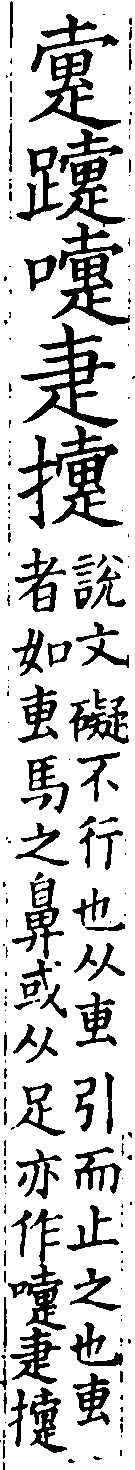 疐嚏疌
說文礙不行也从叀引而止之也叀
者如叀馬之鼻或从足亦作嚏疌